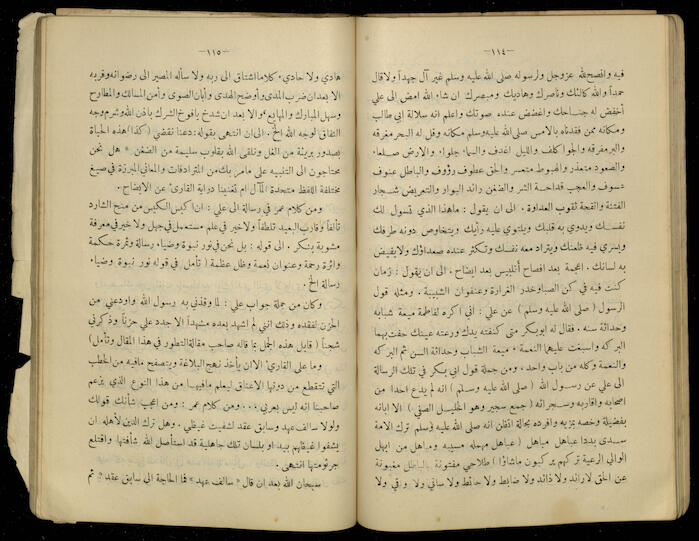 —١١٤—
فيه وانصح لله عز وجل ولرسوله صلى الله عليه وسلم غير آل جهداً ولا قال
حمداً والله كالئك وناصرك وهاديك ومبصرك ان شاء الله امض الى علي
أخفض له جناحك واغضض عنده صوتك واعلم انه سلالة ابي طالب
ومكانه ممن فقدناه بالامس صلى الله عليه وسلم مكانه وقل له البحر مغرقه
والبر مفرقه والجو اكلف والليل اغدف والسماء جلواء والارض صلعاء
والصعود متعذر والهبوط متعسر والحق عطوف رؤوف والباطل عنوف
عسوف والعجب قداحة الشر والضغن رائد البوار والتعريض شجار
الفتنة والقحة ثقوب العداوة. الى ان يقول: ماهذا الذي تسول لك
نفسك ويدوي به قلبك ويلتوي عليه رأيك ويتخاوص دونه طرفك
ويسري فيه ظعنك ويتراد معه نفسك وتكثر عنده صعداؤك ولا يفيض
به لسانك. اعجمة بعد افصاح أتلبيس بعد ايضاح، الى ان يقول: زمان
كنت فيه في كن الصبا وخدر الغرارة وعنفوان الشبيبة. ومثله قول
الرسول (صلى الله عليه وسلم) عن علي: اني اكره لفاطمة ميعة شبابه
وحداثة سنه. فقال له ابو بكر متى كنفته يدك ورعته عينك حفت بهما
البركه واسبغت عليهما النعمة. ميعة الشباب وحداثة السن ثم البركه
والنعمة وكله من باب واحد. ومن جملة قول ابي بكر في تلك الرسالة
الى علي عن رسول الله (صلى الله عليه وسلم) انه لم يدع احدا من
اصحابه واقاربه وسجرائه (جمع سجير وهو الخليل الصفي) الا ابانه
بفضيلة وخصه بمزية وافرده بحالة اتظن انه صلى الله عليه وسلم ترك الامة
سدى بددا عباهل مباهل (عباهل مهمله مسيبه ومباهل من ابهل
الوالي الرعية تركهم يركبون ماشاؤا) طلاحي مفتونة بالباطل مغبونة
عن الحق لا رائد ولا ذائد ولا ضابط ولا حائط ولا ساقي ولا واقي ولا
—١١٥—
هادي ولا حادي. كلا ما اشتاق الى ربه ولا سأله المصير الى رضوانه وقربه
الا بعد ان ضرب المدى وأوضح الهدى وأبان الصوى وأمن المسالك والمطارح
وسهل المبارك والمهايع. والا بعد ان شدخ يافوخ الشرك باذن الله وشرم وجه
النفاق لوجه الله الخ. الى ان انتهى بقوله: دعنا نقضي (كذا) هذه الحياة
بصدور بريئة من الغل ونلقى الله بقلوب سليمة من الضغن * هل نحن
محتاجون الى التنبيه على مامر بك من المترادفات والمعاني المبرزة في صيغ
مختلفة اللفظ متحدة المآل ام تغنينا دراية القارئ عن الايضاح.
ومن كلام عمر في رسالة الى علي: ان اكيس الكيس من منح الشارد
تألفاً وقارب البعيد تلطفاً ولا خير في علم مستعمل في جهل ولا خير في معرفة
مشوبة بنكر. الى قوله: بل نحن في نور نبوة وضياء رسالة وثمرة حكمة
واثرة رحمة وعنوان نعمة وظل عظمة (تأمل في قوله نور نبوة وضياء
رسالة الخ.
وكان من جملة جواب علي: لما وقذني به رسول الله واودعني من
الحزن لفقده وذلك انني لم اشهد بعده مشهداً الا جدد علي حزناً وذكرني
شجناً (قابل هذه الجمل بما قاله صاحب مقالة التطور في هذا المقال وتأمل)
وما على القارئ الا ان يأخذ نهج البلاغة ويتصفح مافيه من الخطب
التي تنقطع من دونها الاعناق ليعلم مافيها من هذا النوع الذي يزعم
صاحبنا انه ليس بعربي . . . ومن كلام عمر: ومن اعجب شأنك قولك
ولولا سالف عهد وسابق عقد لشفيت غيظي. وهل ترك الدين لاهله ان
يشفوا غيظهم بيد او بلسان تلك جاهلية قد استأصل الله شأفتها واقتلع
جرثومتها انتهى.
سبحان الله بعد ان قال « سالف عهد » فما الحاجة الى سابق عقد * ثم